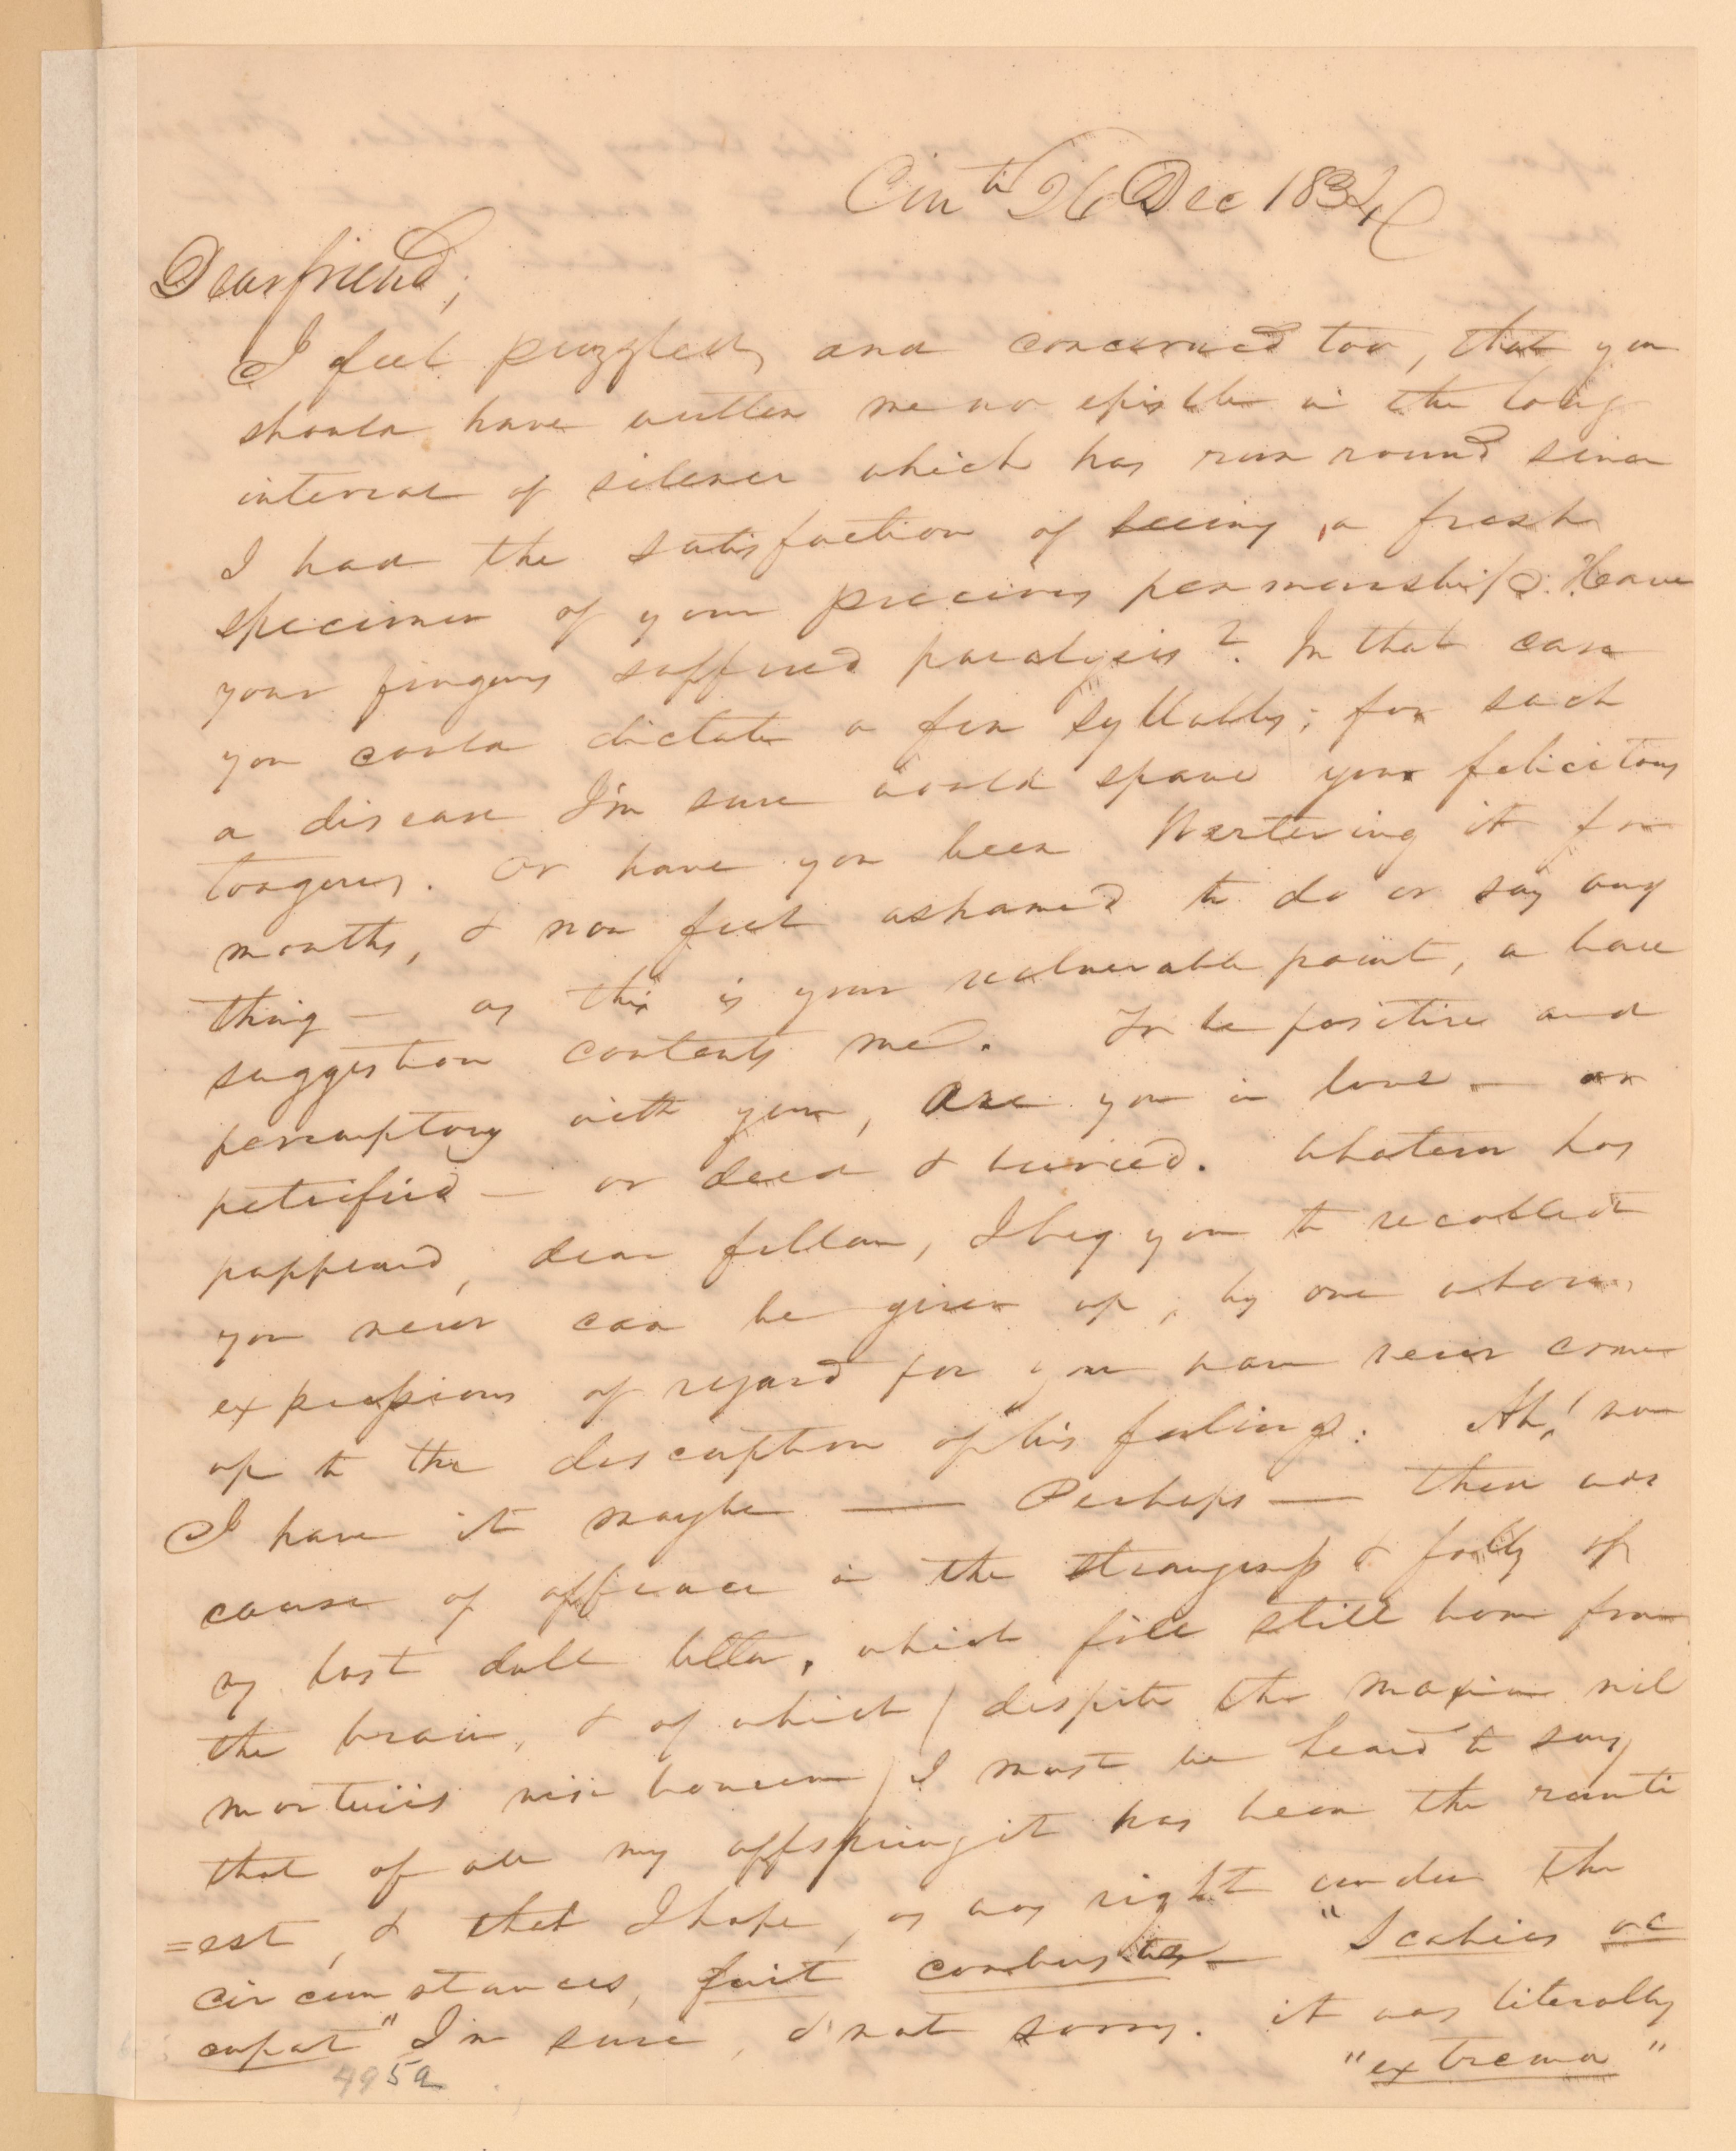 Cinti 26 Dec 1834
Dear friend,
I feel puzzled, and concerned too, that you
should have written me no epistle in the long
interval of silence which has run round since
I had the satisfaction of seeing a fresh
specimen of your precious penmanship. Have
your fingers suffered paralysis? In that case
you could dictate a few syllables; for such
a disease I'm sure would spare your felicitous
tongues. Or have you been Wertering it for
months, & now feel ashamed to do or say any
thing — as this is your vulnerable point, a bare
suggestion contents me. To be positive and
peremptory with you, Are you in love — or
petrified — or dead & buried. Whatever has
happened, dear fellow, I beg you to recollect
you never can be given up, by one whose
expressions of regard for you have never come
up to the description of his feelings. Ah! now
I have it maybe — Perhaps — there was
cause of offence in the strangeness & folly of
my last dull letter, which fell still born from
the brain, & of which (despite the maxim nil
mortuiis nisi bonum) I must be heard to say
that of all my offspring it has been the runti
=est, & that I hope, as was right under the
circumstances, fuit combustus — "Scabies oc
cupat" I'm sure, & not sorry. it was literally
"extremum"
495a